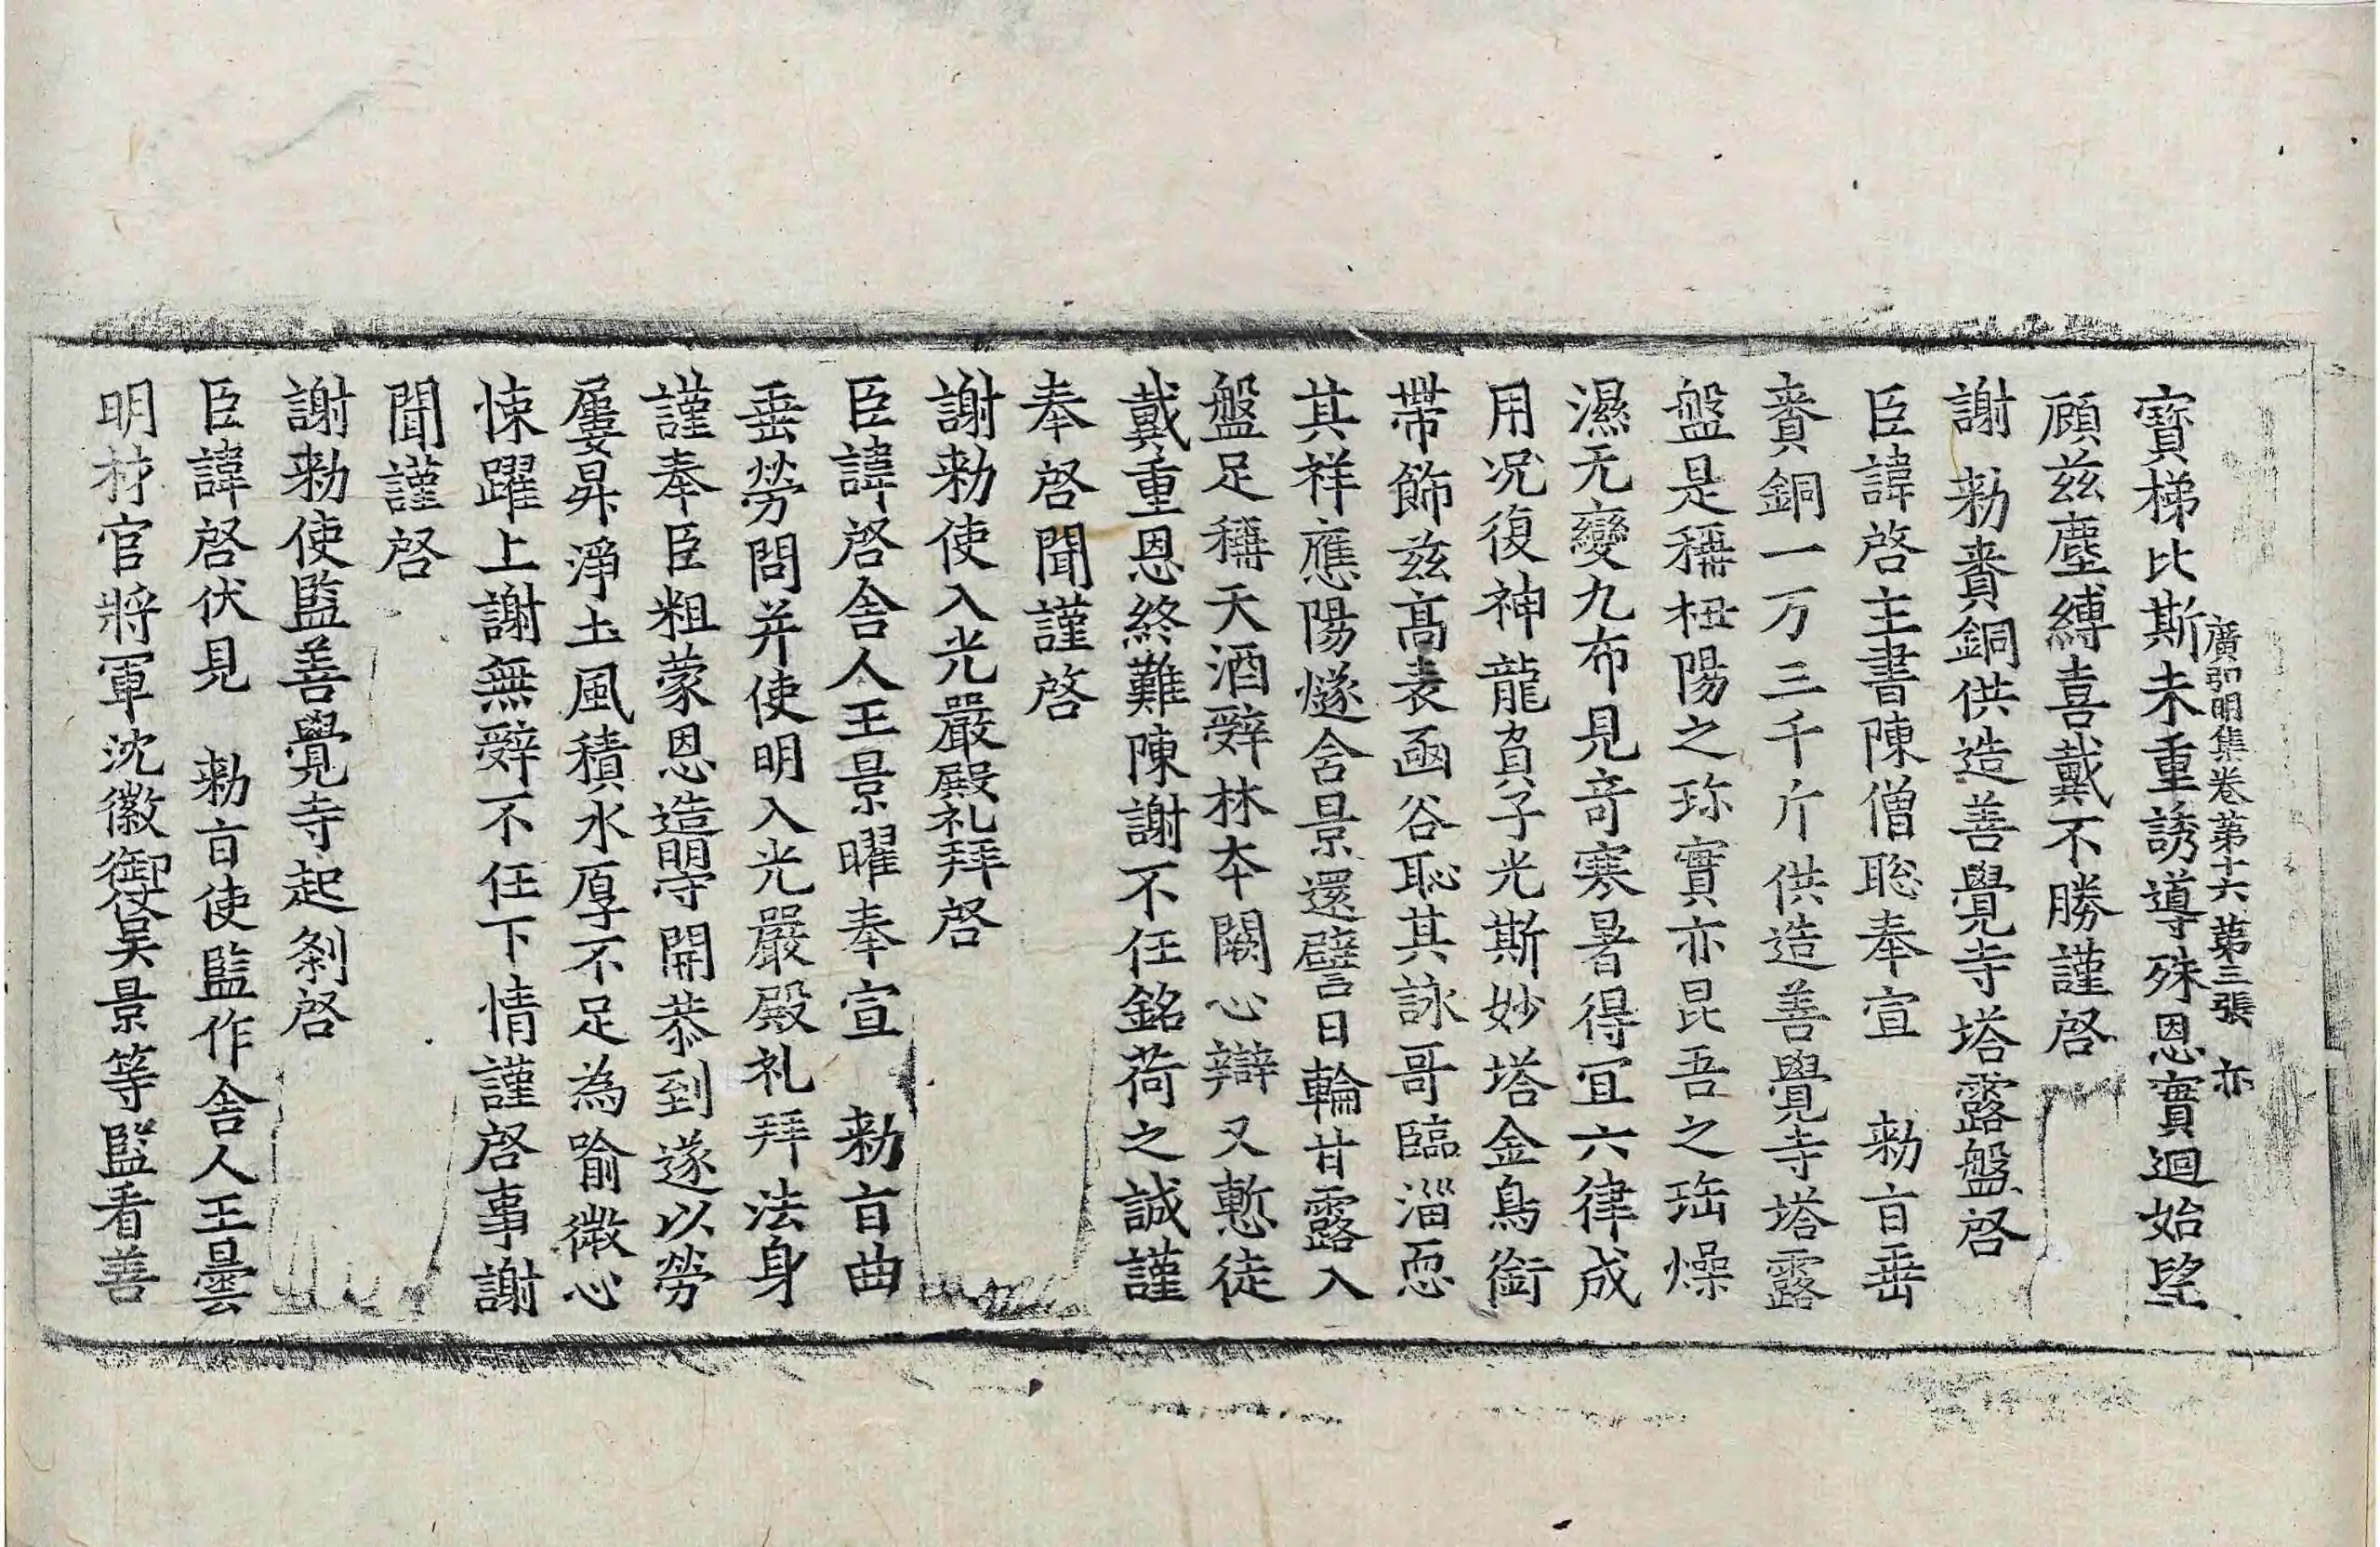 廣弘明集卷第十六 第三張 亦
寶梯比斯未重誘導殊恩實迴始望
顧兹塵縛喜戴不勝謹啓
謝 勑賚銅供造善覺寺塔露盤啓
臣諱啓主書陳僧聡奉宣 勑㫖垂
賚銅一万三千斤供造善覺寺塔露
盤是稱杻陽之珎實亦昆吾之珤燥
濕无變九布見竒寒暑得冝六律成
用况復神龍負子光斯妙塔金鳥銜
帶飾兹髙表凾谷恥其詠哥臨淄恧
其祥應陽燧含景還譬日輪甘露入
盤足稱天酒辤林夲闕心辯又慙徒
戴重恩終難陳謝不任銘荷之誠謹
奉啓聞謹啓
謝勑使入光嚴殿礼拜啓
臣諱啓舎人王景曜奉宣 勑㫖曲
垂勞問并使明入光嚴殿礼拜法身
謹奉臣粗蒙恩造明守開恭到遂以勞
屢昇淨土風積水厚不足為喻微心
悚躍上謝無辤不任下情謹啓事謝
聞謹啓
謝勑使監善覺寺起刹啓
臣諱啓伏見 勑㫖使監作舎人王曇
明材官將軍沈徽御仗吴景等監看善